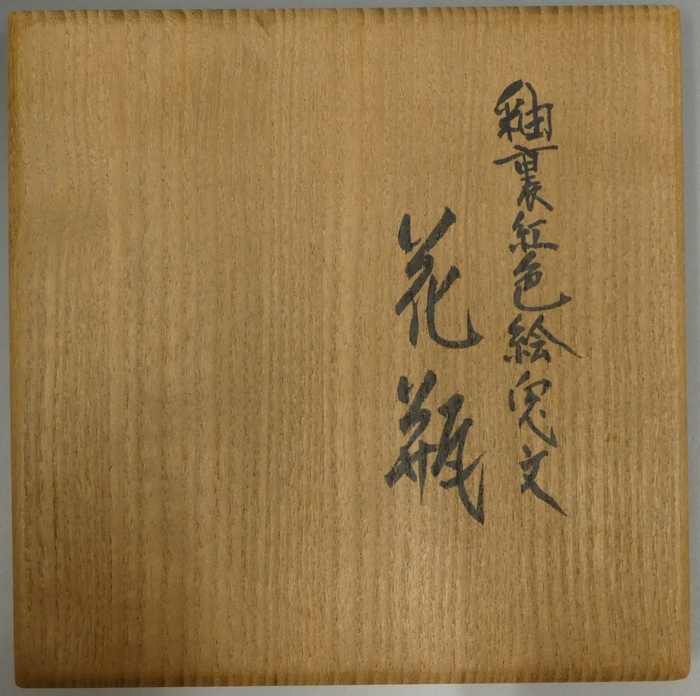 釉裏紅色絵兎文
花瓶